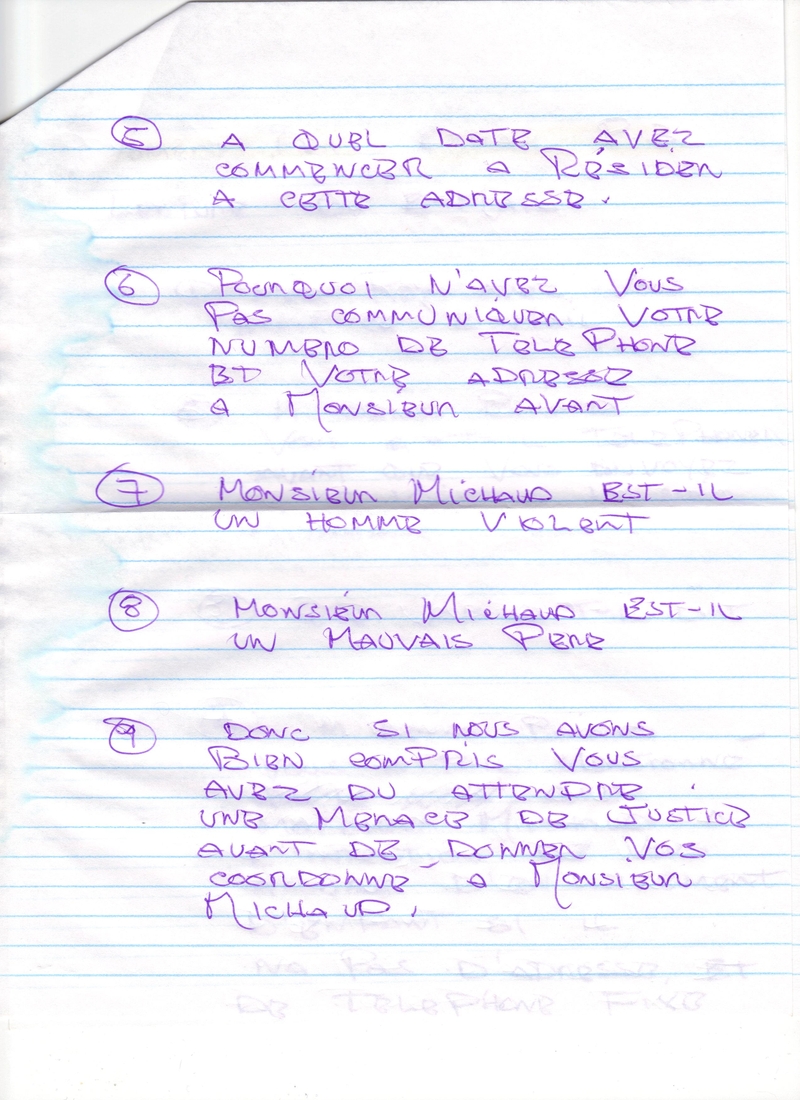 5 A QUEL DATE AVEZ
COMMENCER A RÉSIDER
A CETTE ADRESSE.
6 POURQUOI N'AVEZ VOUS
PAS COMMUNIQUER VOTRE
NUMERO DE TELEPHONE
ET VOTRE ADRESSE
A MONSIEUR AVANT
7 MONSIEUR MICHAUD EST-IL
UN HOMME VIOLENT
8 MONSIEUR MICHAUD EST-IL
UN MAUVAIS PERE
9 DONC SI NOUS AVONS
BIEN COMPRIS VOUS
AVEZ DU ATTENDRE
UNE MENACE DE JUSTICE
AVANT DE DONNER VOS
COORDONNE A MONSIEUR
MICHAUD.
NA PAS D'ADRESSE ET
DE TELEPHONE FIXE